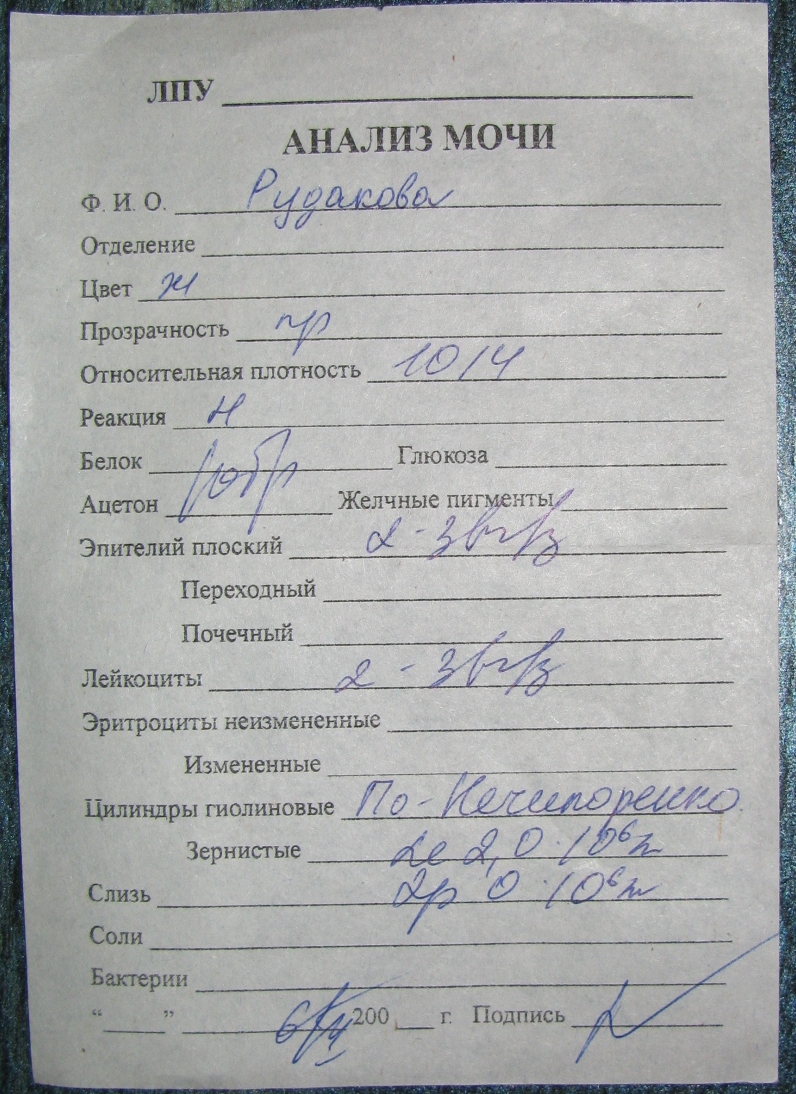 ЛПУ
АНАЛИЗ МОЧИ
Ф. И. О. Рудакова
Отделение
Цвет ж
Прозрачность пр
Относительная плотность 1014
Реакция
Белок Глюкоза
Ацетон Желчные пигменты
Эпителий плоский 2-3 в п/з
Переходный
Почечный
Лейкоциты 2-3 в п/з
Эритроциты неизмененные
Измененные
Цилиндры гиолиновые По-Нечипоренко
Зернистые Le 2,0·10⁶/л
Слизь Эр 0·10⁶/л
Соли
Бактерии
“ ” 200 г. Подпись